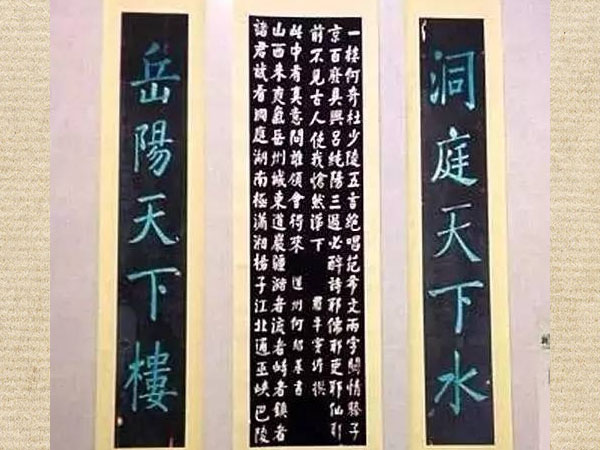 洞庭天下水
一樓何奇杜少陵五言絕唱范希文兩字關情滕子
京百廢具興呂純陽三過必醉詩耶儒耶吏耶仙耶
前不見古人使我愴然涕下 羅平竇垿撰
諸君試看洞庭湖南極瀟湘揚子江北通巫峽巴陵
山西來爽氣岳州城東道巖疆瀦者流者峙者鎮者
此中有真意問誰領會得來 道州何紹基書
岳陽天下樓